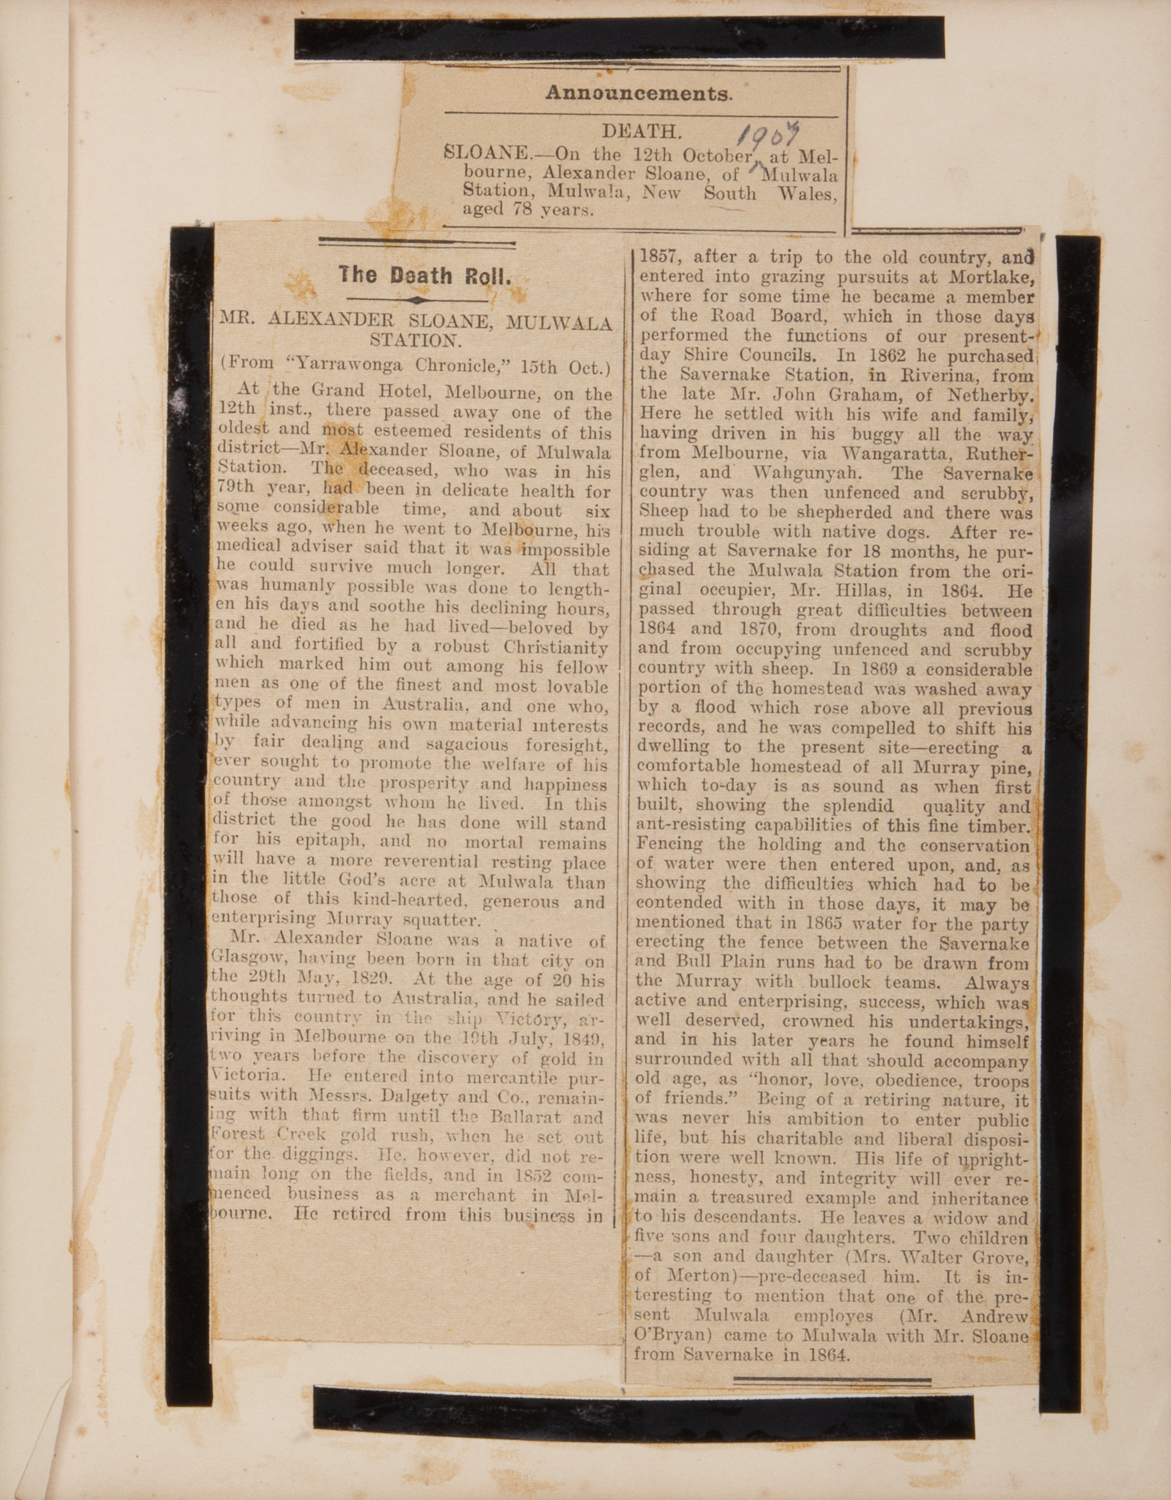 Announcements.
DEATH.
1907
SLOANE.—On the 12th October, at Mel-
bourne, Alexander Sloane, of Mulwala
Station, Mulwala, New South Wales,
aged 78 years.
The Death Roll.
MR. ALEXANDER SLOANE, MULWALA
STATION.
(From "Yarrawonga Chronicle," 15th Oct.)
At the Grand Hotel, Melbourne, on the
12th inst., there passed away one of the
oldest and most esteemed residents of this
district—Mr. Alexander Sloane, of Mulwala
Station. The deceased, who was in his
79th year, had been in delicate health for
some considerable time, and about six
weeks ago, when he went to Melbourne, his
medical adviser said that it was impossible
he could survive much longer. All that
was humanly possible was done to length-
en his days and soothe his declining hours,
and he died as he had lived—beloved by
all and fortified by a robust Christianity
which marked him out among his fellow
men as one of the finest and most lovable
types of men in Australia, and one who,
while advancing his own material interests
by fair dealing and sagacious foresight,
ever sought to promote the welfare of his
country and the prosperity and happiness
of those amongst whom he lived. In this
district the good he has done will stand
for his epitaph, and no mortal remains
will have a more reverential resting place
in the little God's acre at Mulwala than
those of this kind-hearted, generous and
enterprising Murray squatter.
Mr. Alexander Sloane was a native of
Glasgow, having been born in that city on
the 29th May, 1829. At the age of 20 his
thoughts turned to Australia, and he sailed
for this country in the ship Victory, ar-
riving in Melbourne on the 19th July, 1849,
two years before the discovery of gold in
Victoria. He entered into mercantile pur-
suits with Messrs. Dalgety and Co., remain-
ing with that firm until the Ballarat and
Forest Creek gold rush, when he set out
for the diggings. He, however, did not re-
main long on the fields, and in 1852 com-
menced business as a merchant in Mel-
bourne. He retired from this business in
1857, after a trip to the old country, and
entered into grazing pursuits at Mortlake,
where for some time he became a member
of the Road Board, which in those days
performed the functions of our present-
day Shire Councils. In 1862 he purchased
the Savernake Station, in Riverina, from
the late Mr. John Graham, of Netherby.
Here he settled with his wife and family,
having driven in his buggy all the way
from Melbourne, via Wangaratta, Ruther-
glen, and Wahgunyah. The Savernake
country was then unfenced and scrubby,
Sheep had to be shepherded and there was
much trouble with native dogs. After re-
siding at Savernake for 18 months, he pur-
chased the Mulwala Station from the ori-
ginal occupier, Mr. Hillas, in 1864. He
passed through great difficulties between
1864 and 1870, from droughts and flood
and from occupying unfenced and scrubby
country with sheep. In 1869 a considerable
portion of the homestead was washed away
by a flood which rose above all previous
records, and he was compelled to shift his
dwelling to the present site—erecting a
comfortable homestead of all Murray pine,
which to-day is as sound as when first
built, showing the splendid quality and
ant-resisting capabilities of this fine timber.
Fencing the holding and the conservation
of water were then entered upon, and, as
showing the difficulties which had to be
contended with in those days, it may be
mentioned that in 1865 water for the party
erecting the fence between the Savernake
and Bull Plain runs had to be drawn from
the Murray with bullock teams. Always
active and enterprising, success, which was
well deserved, crowned his undertakings,
and in his later years he found himself
surrounded with all that should accompany
old age, as "honor, love, obedience, troops
of friends." Being of a retiring nature, it
was never his ambition to enter public
life, but his charitable and liberal disposi-
tion were well known. His life of upright-
ness, honesty, and integrity will ever re-
main a treasured example and inheritance
to his descendants. He leaves a widow and
five sons and four daughters. Two children
—a son and daughter (Mrs. Walter Grove,
of Merton)—pre-deceased him. It is in-
teresting to mention that one of the pre-
sent Mulwala employes (Mr. Andrew
O'Bryan) came to Mulwala with Mr. Sloane
from Savernake in 1864.